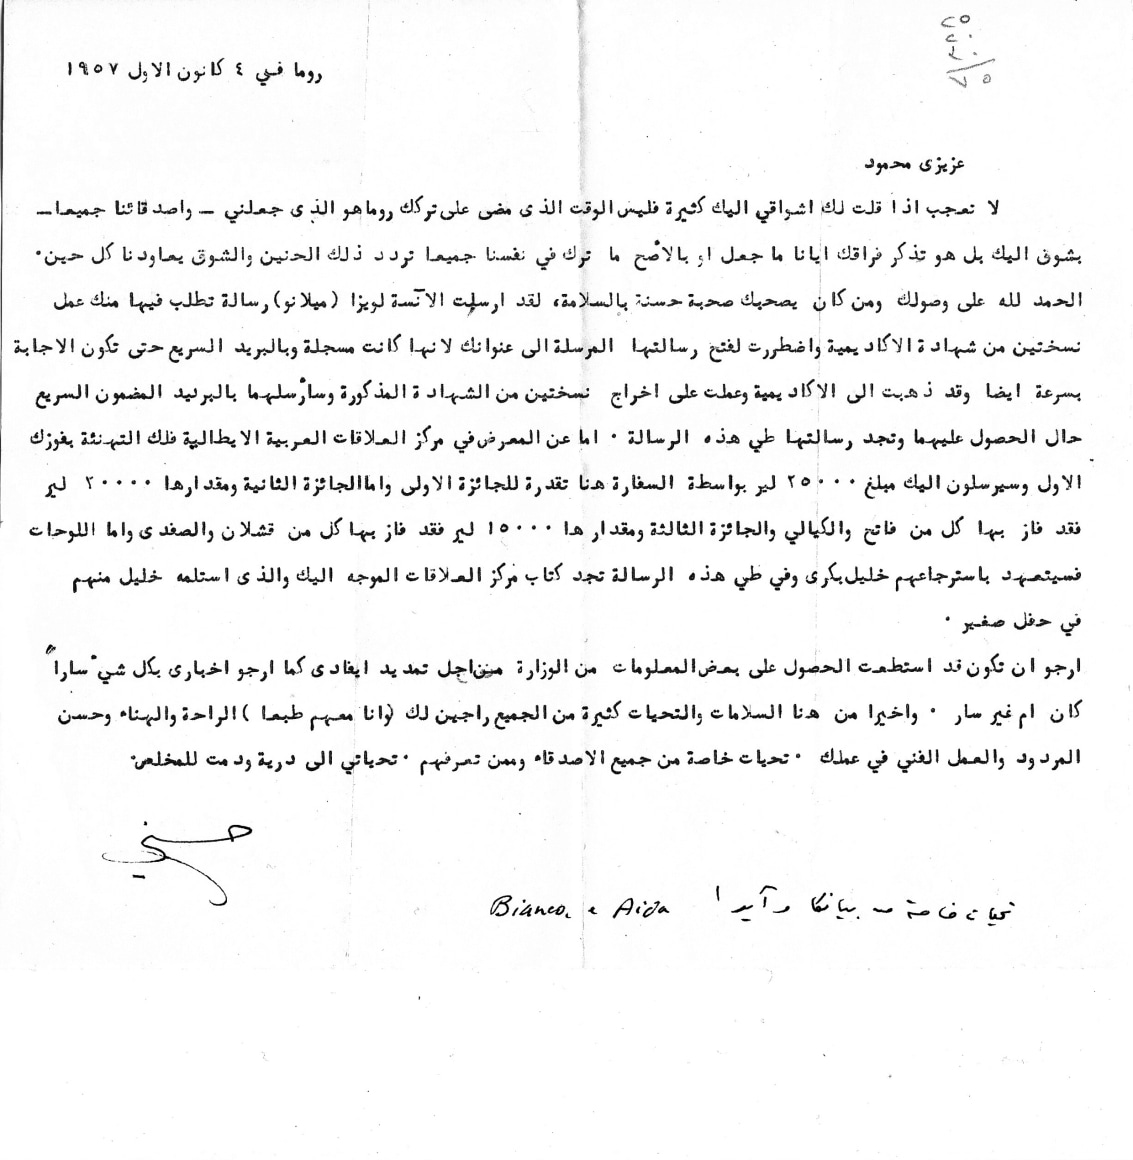 روما في ٤ كانون الاول ١٩٥٧
عزيزى محمود
لا تعجب اذا قلت لك اشواقي اليك كثيرة فليس الوقت الذى مضى على تركك روما هو الذى جعلني - واصدقائنا جميعا -
بشوق اليك بل هو تذكر فراقك ايانا ما جعل او بالأصح ما ترك في نفسنا جميعا تردد ذلك الحنين والشوق يعاودنا كل حين٠
الحمد لله على وصولك ومن كان يصحبك صحبة حسنة بالسلامة، لقد ارسلت الآنسة لويزا (ميلانو) رسالة تطلب فيها منك عمل
نسختين من شهادة الاكاديمية واضطررت لفتح رسالتها المرسلة الى عنوانك لانها كانت مسجلة وبالبريد السريع حتى تكون الاجابة
بسرعة ايضا وقد ذهبت الى الاكاديمية وعملت على اخراج نسختين من الشهادة المذكورة وسأرسلهما بالبرليد المضمون السريع
حال الحصول عليهما وتجد رسالتها طي هذه الرسالة ٠ اما عن المعرض في مركز العلاقات العربية الايطالية فلك التهنئة بفوزك
الاول وسيرسلون اليك مبلغ ٢٥٠٠٠ لير بواسطة السفارة هنا تقدرة للجائزة الاولى واماالجائزة الثانية ومقدارها ٢٠٠٠٠ لير
فقد فاز بها كل من فاتح والكيالي والجائزة الثالثة ومقدارها ١٥٠٠٠ لير فقد فاز بها كل من قشلان والصفدى واما اللوحات
فسيتعهد باسترجاعهم خليل بكرى وفي طي هذه الرسالة تجد كتاب مركز العلاقات الموجه اليك والذى استلمه خليل منهم
في حفل صغير ٠
ارجو ان تكون قد استطعت الحصول على بعض المعلومات من الوزارة من اجل تمديد ايفادى كما ارجو اخبارى بكل شيء ساراً
كان ام غير سار ٠ واخيرا من هنا السلامات والتحيات كثيرة من الجميع راجين لك (وانا معهم طبعا) الراحة والهناء وحسن
المردود والعمل الفني في عملك ٠ تحيات خاصة من جميع الاصدقاء وممن تعرفهم ٠ تحياتي الى درية ودمت للمخلص٠
حسني
تحيات خاصة من بيانكا و آيدا Bianca e Aida